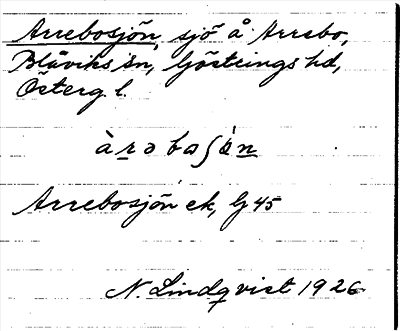 Arrebosjön, sjö å Arrebo,
Blåviks sn, Göstrings hd,
Österg. l.
àrəbaʃön
Arrebosjön ek, G 45
N. Lindqvist 1926